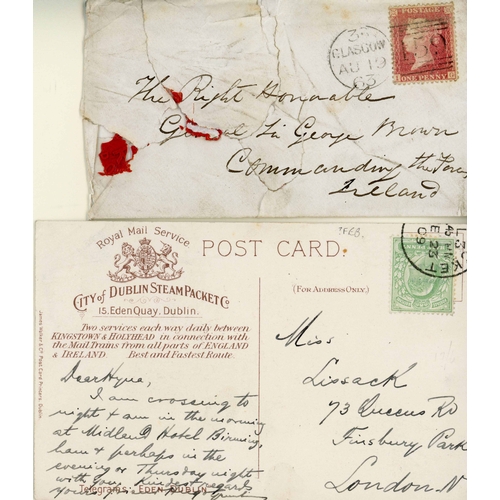 35
GLASGOW
AU 19
63
POSTAGE
ONE PENNY
The Right Honourable
General Sir George Brown
Commanding the Forces
Ireland
Royal Mail Service
CITY OF DUBLIN STEAM PACKET Co
15. Eden Quay. Dublin.
Two services each way daily between
KINGSTOWN & HOLYHEAD in connection with
the Mail Trains from all parts of ENGLAND
& IRELAND Best and Fastest Route.
POST CARD.
3FEB.
(FOR ADDRESS ONLY.)
Dear Hyne,
I am crossing to
night & am in the morning
at Midland Hotel Birming
ham & perhaps in the
evening or Thursday night
with you. kindest regards
Telegrams: EDEN DUBLIN
Miss
Lissack
73 Queens Rd
Finsbury Park
London. N